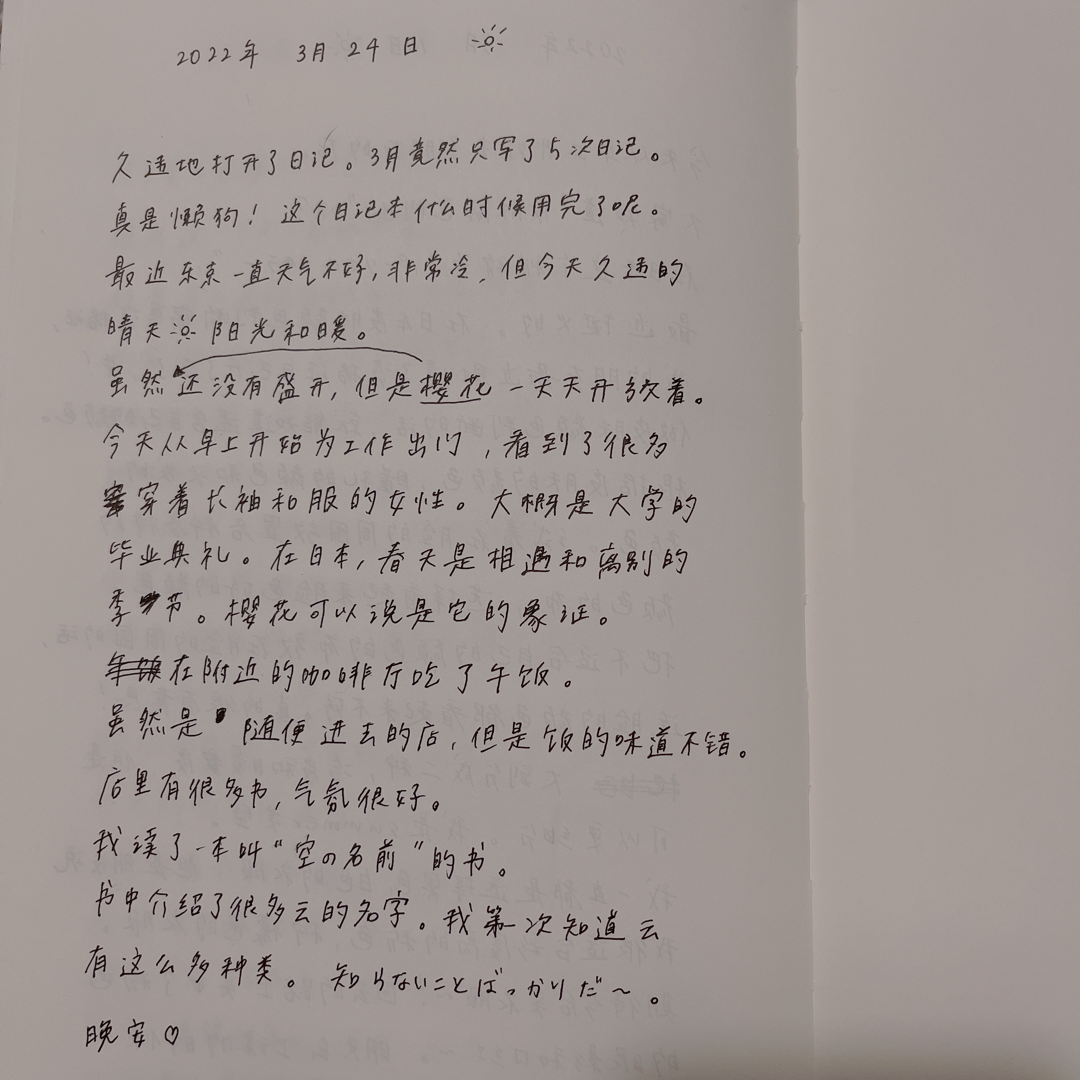 2022年 3月 24日 ☀
久违地打开了日记。3月竟然只写了5次日记。
真是懒狗！这个日记本什么时候用完了呢。
最近东京一直天气不好,非常冷,但今天久违的
晴天☀阳光和暖。
虽然还没有盛开,但是樱花一天天开放着。
今天从早上开始为工作出门,看到了很多
穿着长袖和服的女性。大概是大学的
毕业典礼。在日本,春天是相遇和离别的
季节。樱花可以说是它的象征。
在附近的咖啡厅吃了午饭。
虽然是随便进去的店,但是饭的味道不错。
店里有很多书,气氛很好。
我读了一本叫“空の名前”的书。
书中介绍了很多云的名字。我第一次知道云
有这么多种类。知らないことばっかりだ～。
晚安♡